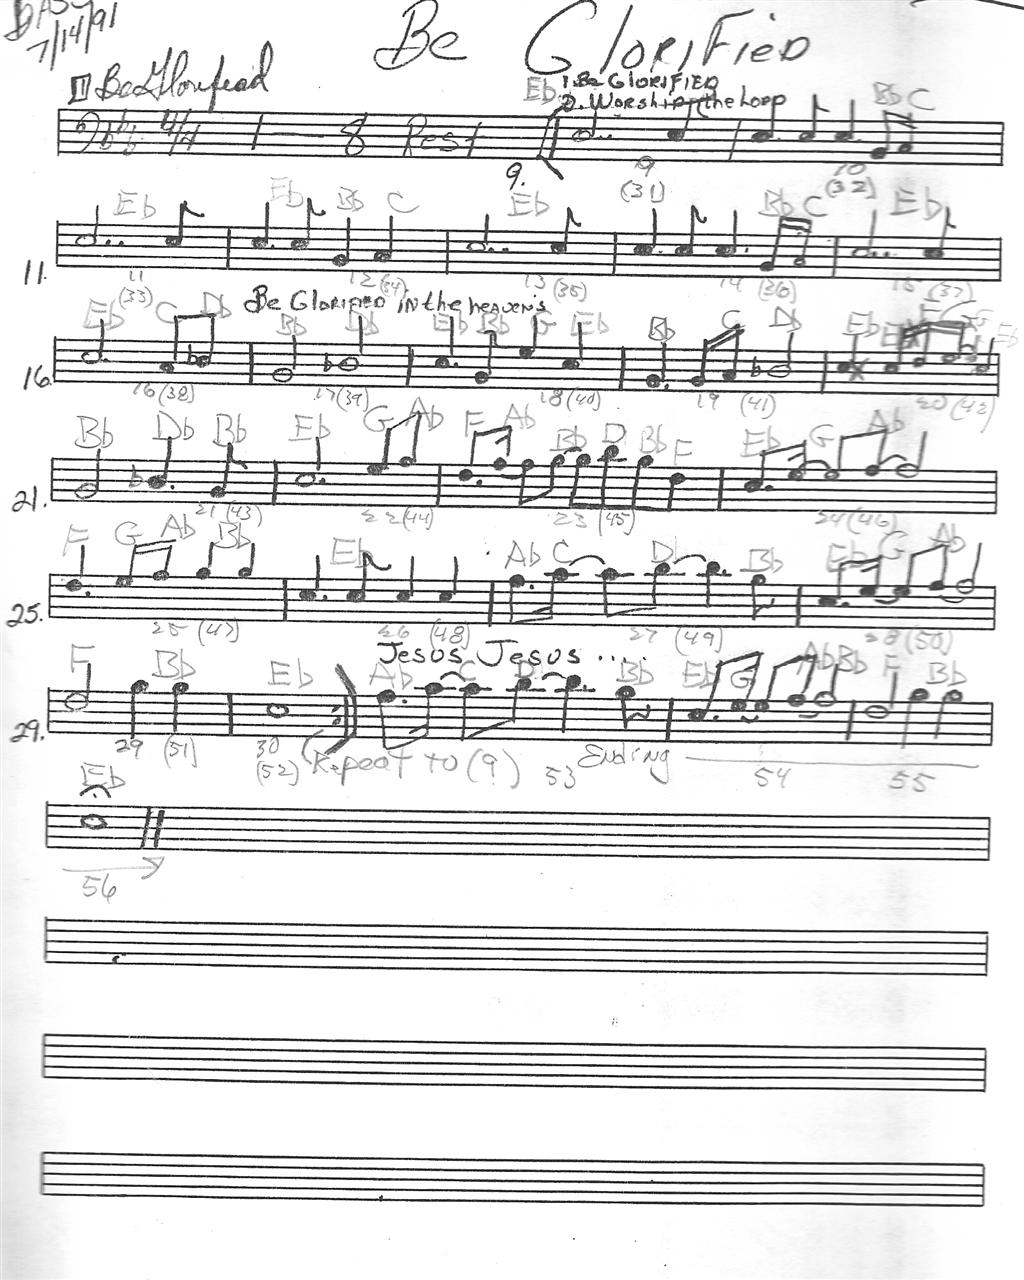 BASS
7/14/91
Be Glorified
II Be Glorified
Eb 1. Be Glorified
2. Worship the Lord
Bb C
4/4 1 — 8 Rest
9. 9 (31) 10 (32)
Eb Eb Bb C Eb Bb C Eb
11. 11 (33) 12 (34) 13 (35) 14 (36) 15 (37)
Be Glorified in the heavens
Eb C Db Bb Db Eb Bb G Eb Bb C Db Eb Eb
16. 16 (38) 17 (39) 18 (40) 19 (41) 20 (42)
Bb Db Bb Eb G Ab F Ab Bb D Bb F Eb G Ab
21. 21 (43) 22 (44) 23 (45) 24 (46)
F G Ab Bb Eb Ab C Db Bb Eb G Ab
25. 25 (47) 26 (48) 27 (49) 28 (50)
Jesus Jesus ....
F Bb Eb Ab C D Bb Eb G Ab Bb F Bb
29. 29 (51) 30 (52) (Repeat to (9) 53 Ending 54 55
Eb
56